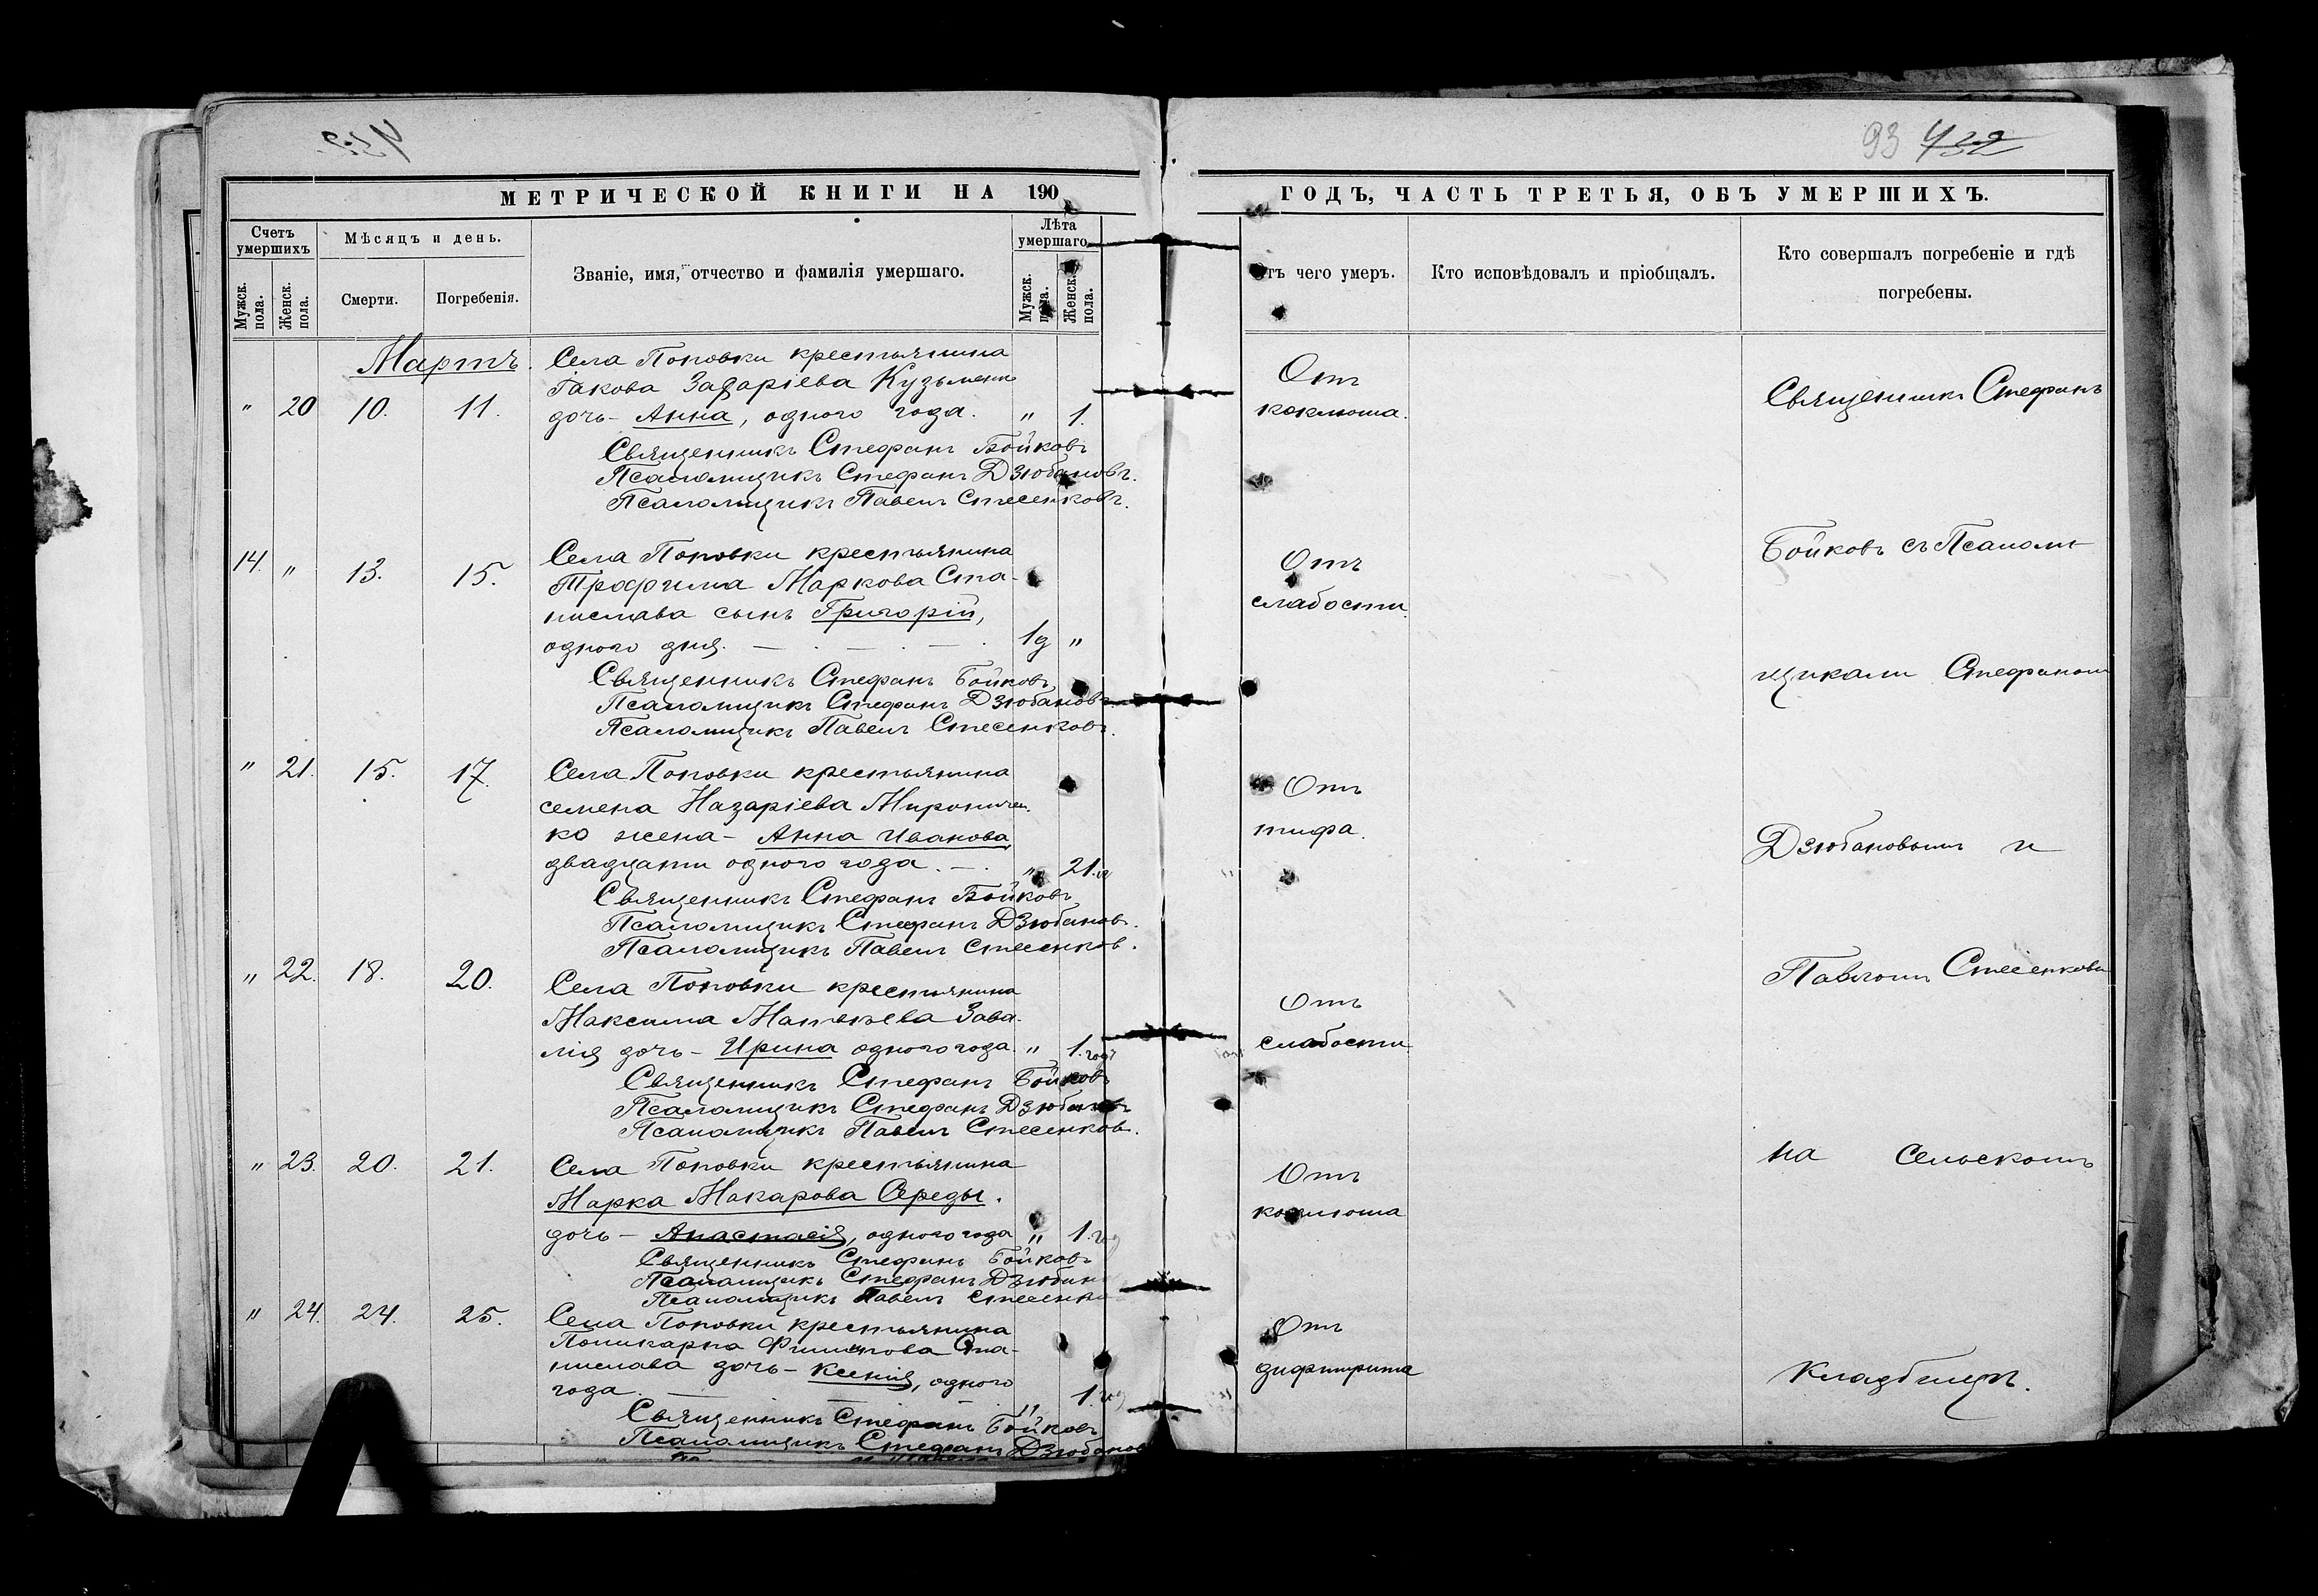 93 432
МЕТРИЧЕСКОЙ КНИГИ НА 190
ГОДЪ, ЧАСТЬ ТРЕТЬЯ, ОБЪ УМЕРШИХЪ.
Счетъ умершихъ
Мужск. пола.
Женск. пола.
Мѣсяцъ и день.
Смерти.
Погребенія.
Званіе, имя, отчество и фамилія умершаго.
Лѣта умершаго
Мужск. пола.
Женск. пола.
чего умеръ.
Кто исповѣдовалъ и пріобщалъ.
Кто совершалъ погребеніе и гдѣ
погребены.
Мартъ.
Села Поповки крестьянина
Іакова Захаріева Кузьменк
" 20 10. 11. дочь - Анна, одного года. " 1.
Священникъ Стефанъ Бойковъ
Псаломщикъ Стефанъ Дзюбановъ.
Псаломщикъ Павелъ Стесенковъ.
Отъ
коклюша.
14. " 13. 15. Села Поповки крестьянина
Трофима Маркова Ста-
нислава сынъ Григорій,
одного дня. 1д "
Священникъ Стефанъ Бойковъ
Псаломщикъ Стефанъ Дзюбановъ
Псаломщикъ Павелъ Стесенковъ.
Отъ
слабости.
" 21. 15. 17. Села Поповки крестьянина
Семена Назаріева Мироничен
ко жена - Анна Иванова,
двадцати одного года. " 21.
Священникъ Стефанъ Бойковъ
Псаломщикъ Стефанъ Дзюбановъ.
Псаломщикъ Павелъ Стесенков.
Отъ
тифа.
" 22. 18. 20. Села Поповки крестьянина
Максима Матвѣева Зава-
лія дочь - Ирина одного года. " 1. годъ
Священникъ Стефанъ Бойковъ
Псаломщикъ Стефанъ Дзюбановъ
Псаломщикъ Павелъ Стесенков.
Отъ
слабости
" 23. 20. 21. Села Поповки крестьянина
Марка Макарова Середы.
дочь - Анастасія, одного года " 1. год
Священникъ Стефанъ Бойковъ
Псаломщикъ Стефанъ Дзюбан
Псаломщикъ Павелъ Стесенко
Отъ
коклюша
" 24. 24. 25. Села Поповки крестьянина
Поликарпа Филипова Ста-
нислава дочь - Ксенія, одного
года. " 1. год
Священникъ Стефанъ Бойковъ
Псаломщикъ Стефанъ Дзюбанов
Отъ
дифтерита
Священникъ Стефанъ
Бойковъ съ Псалом-
щиками Стефаномъ
Дзюбановымъ и
Павломъ Стесенковы
на Сельскомъ
кладбищѣ.